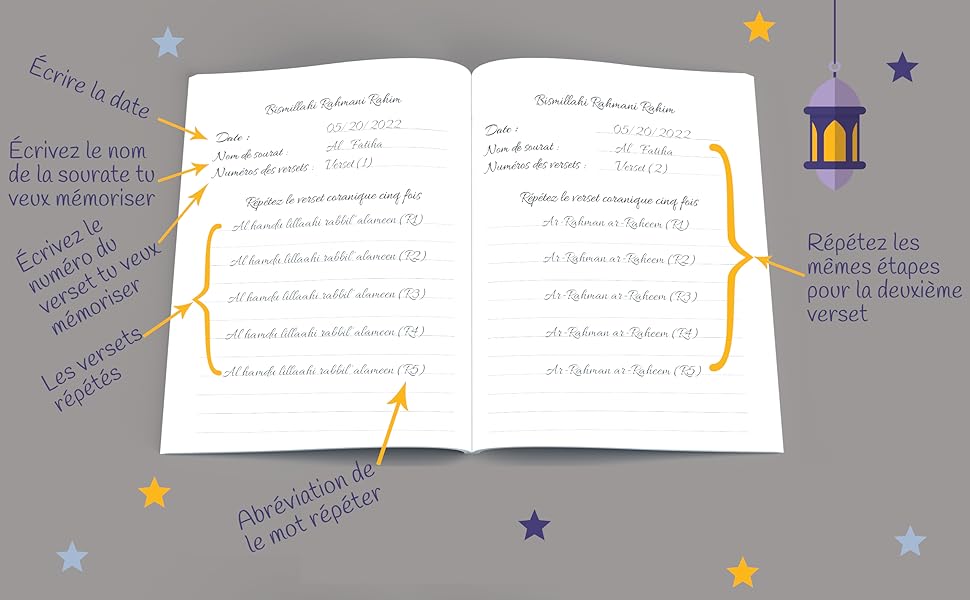 Écrire la date
Écrivez le nom
de la sourate tu
veux mémoriser
Écrivez le
numéro du
verset tu veux
mémoriser
Les versets
répétés
Bismillahi Rahmani Rahim
Date : 05/20/2022
Nom de sourat : Al Fatiha
Numéros des versets : Verset (1)
Répétez le verset coranique cinq fois
Al hamdu lillaahi rabbil' alameen (R1)
Al hamdu lillaahi rabbil' alameen (R2)
Al hamdu lillaahi rabbil' alameen (R3)
Al hamdu lillaahi rabbil' alameen (R4)
Al hamdu lillaahi rabbil' alameen (R5)
Abréviation de
le mot répéter
Bismillahi Rahmani Rahim
Date : 05/20/2022
Nom de sourat : Al Fatiha
Numéros des versets : Verset (2)
Répétez le verset coranique cinq fois
Ar-Rahman ar-Raheem (R1)
Ar-Rahman ar-Raheem (R2)
Ar-Rahman ar-Raheem (R3)
Ar-Rahman ar-Raheem (R4)
Ar-Rahman ar-Raheem (R5)
Répétez les
mêmes étapes
pour la deuxième
verset